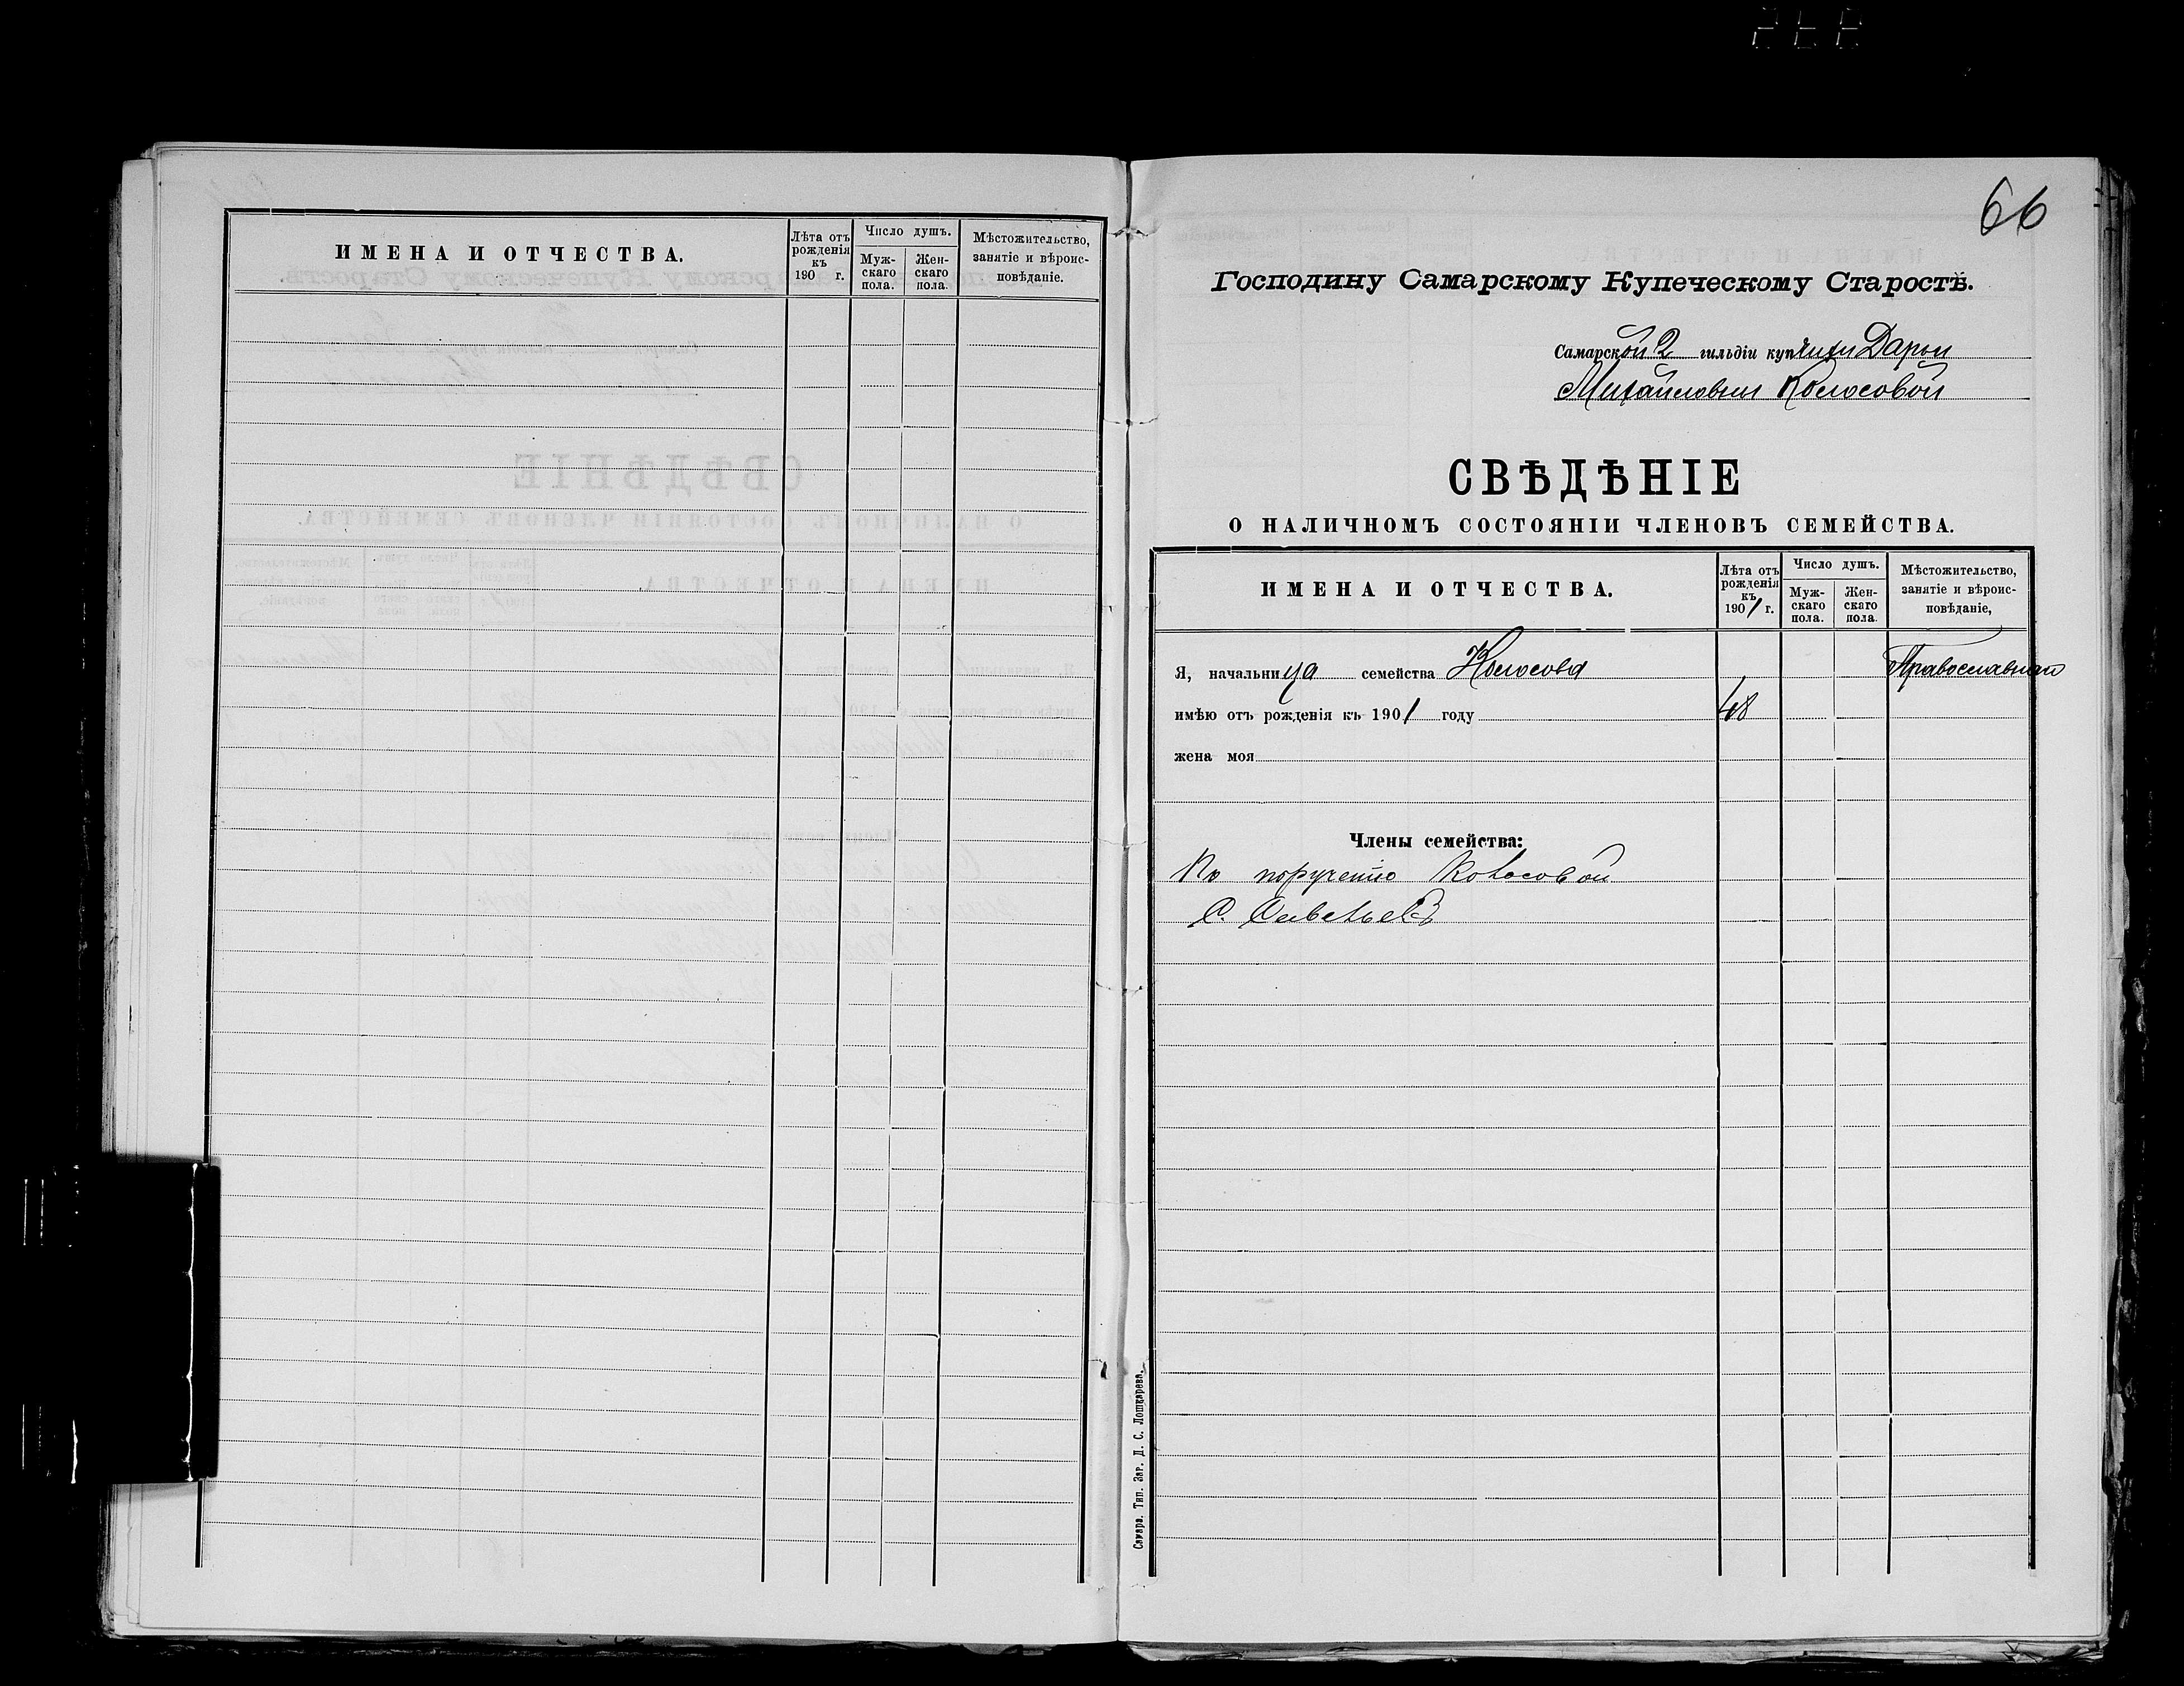 ИМЕНА И ОТЧЕСТВА.
Лѣта отъ
рожденія
къ
190 г.
Число душъ.
Муж-
скаго
пола.
Жен-
скаго
пола.
Мѣстожительство,
занятіе и вѣроис-
повѣданіе.
66
Господину Самарскому Купеческому Старостѣ.
Самарской 2 гильдіи купчихи Дарьи
Михайловны Колосовой
СВѢДѢНІЕ
О НАЛИЧНОМЪ СОСТОЯНІИ ЧЛЕНОВЪ СЕМЕЙСТВА.
ИМЕНА И ОТЧЕСТВА.
Лѣта отъ
рожденія
къ
1901 г.
Число душъ.
Муж-
скаго
пола.
Жен-
скаго
пола.
Мѣстожительство,
занятіе и вѣроис-
повѣданіе,
Я, начальница семейства Колосова Православная
имѣю отъ рожденія къ 1901 году 48
жена моя
Члены семейства:
По порученію Колосовой
Самара. Тип. Зар. Д. С. Лошкарева.